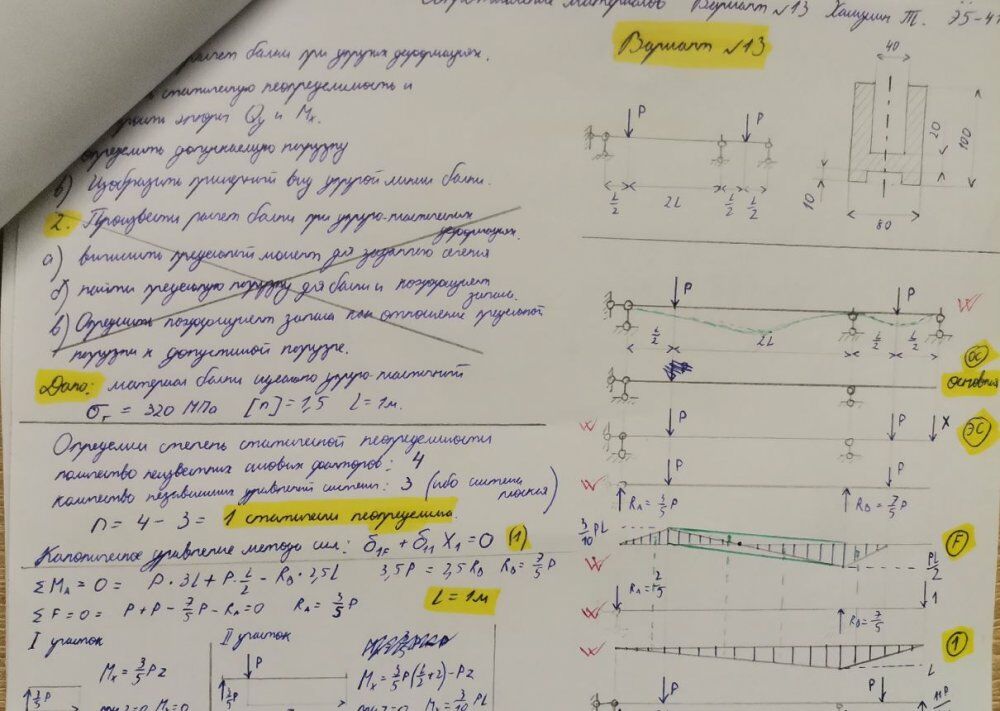 Сопротивление материалов Вариант №13 Хамзин Т. Э5-4
расчет балки при упругих деформациях.
статическую неопределимость и
эпюры Qy и Mx.
определить допускаемую нагрузку
в) Изобразить примерный вид упругой линии балки.
2. Произвести расчет балки при упруго-пластических деформациях.
а) вычислить предельный момент для заданного сечения
б) найти предельную нагрузку для балки и коэффициент запаса.
в) Определить коэффициент запаса как отношение предельной
нагрузки к допустимой нагрузке.
Дано: материал балки идеально упруго-пластичный
σт = 320 МПа [n]=1,5 L=1м.
Определим степень статической неопределимости
количество неизвестных силовых факторов: 4
количество независимых уравнений системы: 3 (ибо система плоская)
n = 4 - 3 = 1 статически неопределима.
Каноническое уравнение метода сил: δ1F + δ11 X1 = 0 (1)
ΣMA = 0 = P · 3L + P · L/2 - RB · 2,5L 3,5P = 2,5 RB RB = 7/5 P
ΣF = 0 = P + P - 7/5 P - RA = 0 RA = 3/5 P
L = 1м
I участок
Mx = 3/5 P z
3/5 P
II участок
P
3/5 P
Mx = 3/5 P (L/2 + z) - Pz
Mx = 3/10 PL
Вариант №13
P
P
L/2
2L
L/2
L/2
40
20
100
10
80
P
P
L/2
2L
L/2
L/2
ОС
основная
P
P
X
ЭС
P
P
RA = 3/5 P
RB = 7/5 P
3/10 PL
PL/2
F
RA = 2/5
1
RB = 7/5
1
L
P
P
11P